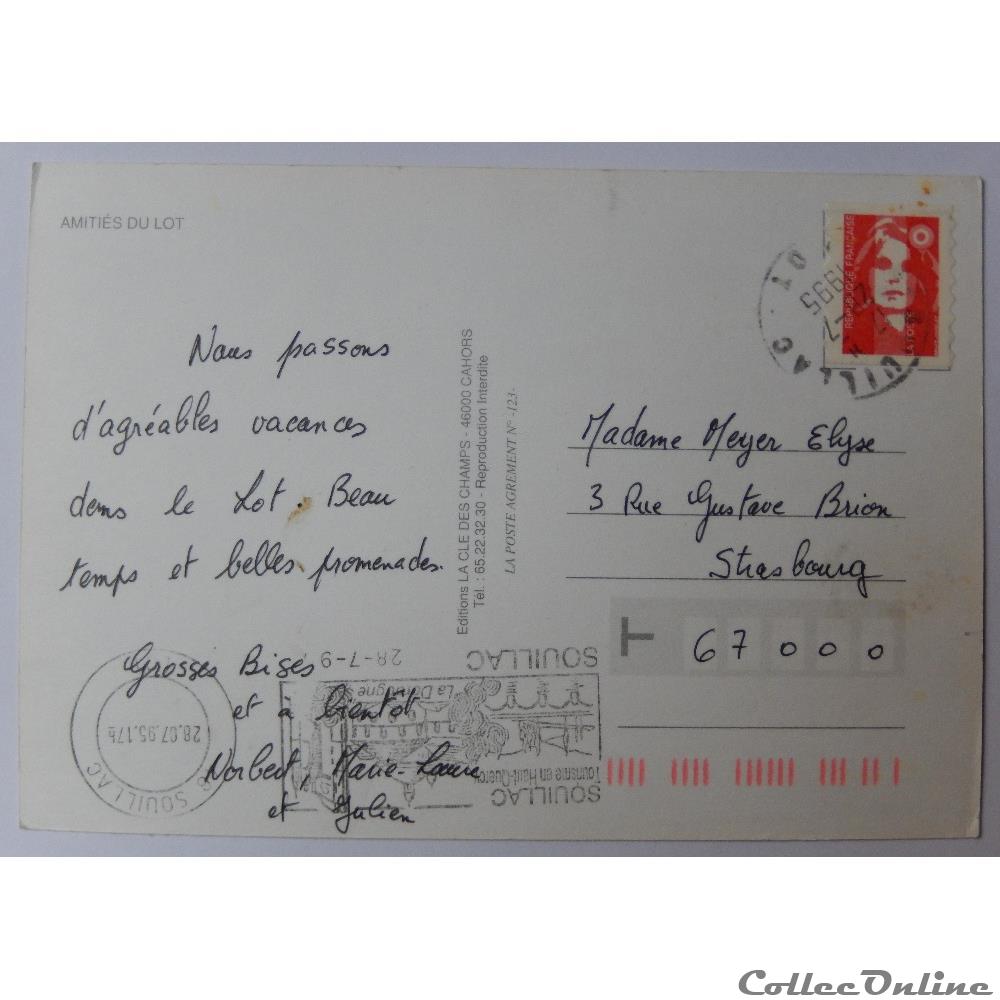 AMITIÉS DU LOT
Nous passons
d'agréables vacances
dans le Lot. Beau
temps et belles promenades.
Grosses Bises
et à bientôt
Norbert Marie-Laure
et Julien
Editions LA CLE DES CHAMPS - 46000 CAHORS
Tél. : 65.22.32.30 - Reproduction Interdite
LA POSTE AGREMENT N° -123-
REPUBLIQUE FRANÇAISE
LA POSTE
UILLAC · LOT
1995
Madame Meyer Elyse
3 Rue Gustave Brion
Strasbourg
T 67000
SOUILLAC
28.07.95.17h
SOUILLAC
Tourisme en Haut-Quercy
La Dordogne
SOUILLAC
28-7-9
CollecOnline